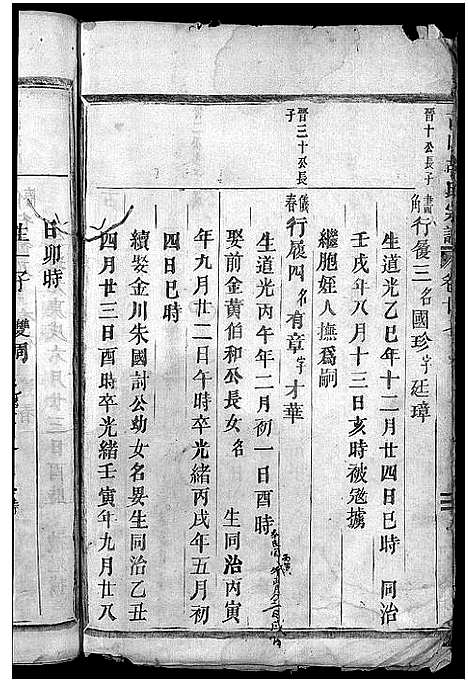 晉十公長子
畫角行履三名國珍字廷璋
生道光乙巳年十二月廿四日巳時 同治
壬戌年八月十三日亥時被逖擄
繼胞姪人撫爲嗣
晉三十公長子
儀春行履四名有章字才華
生道光丙午年二月初一日酉時
娶前金黃伯和公長女名 生同治丙寅
年九月廿二日午時卒光緒丙戌年五月初
四日巳時
續娶金川朱國討公幼女名晏生同治乙丑
四月廿三日酉時卒光緒壬寅年九月廿八
日卯時
生一子 雙周